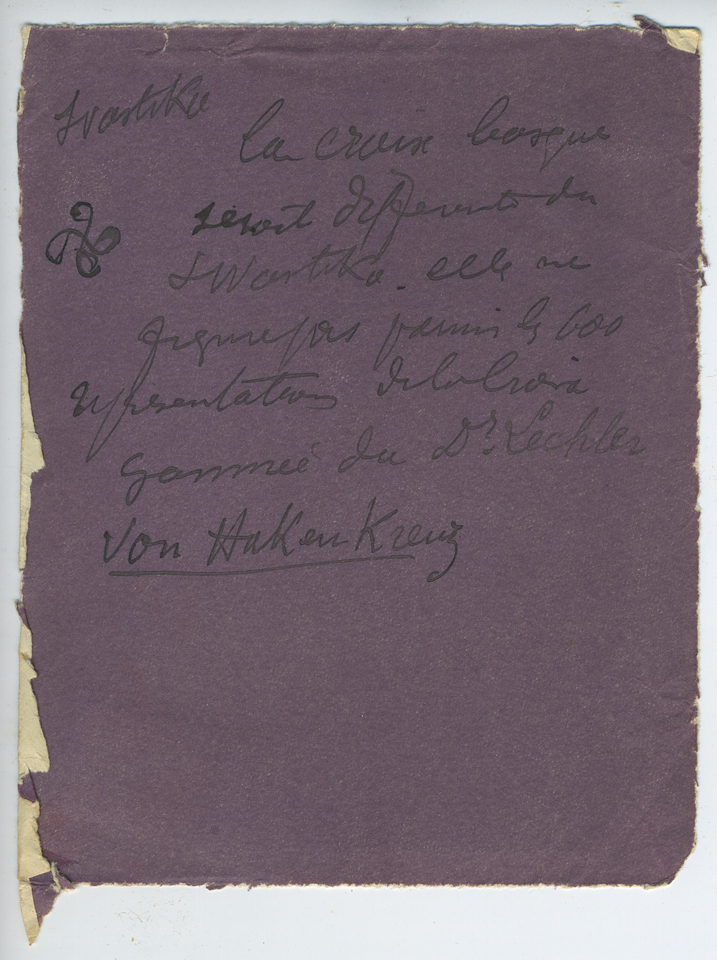 Svastika
la croix basque
serait différente du
Swastika. elle ne
figure pas parmi les 600
représentations de la croix
gammée du Dr Lechler
Von HakenKreuz